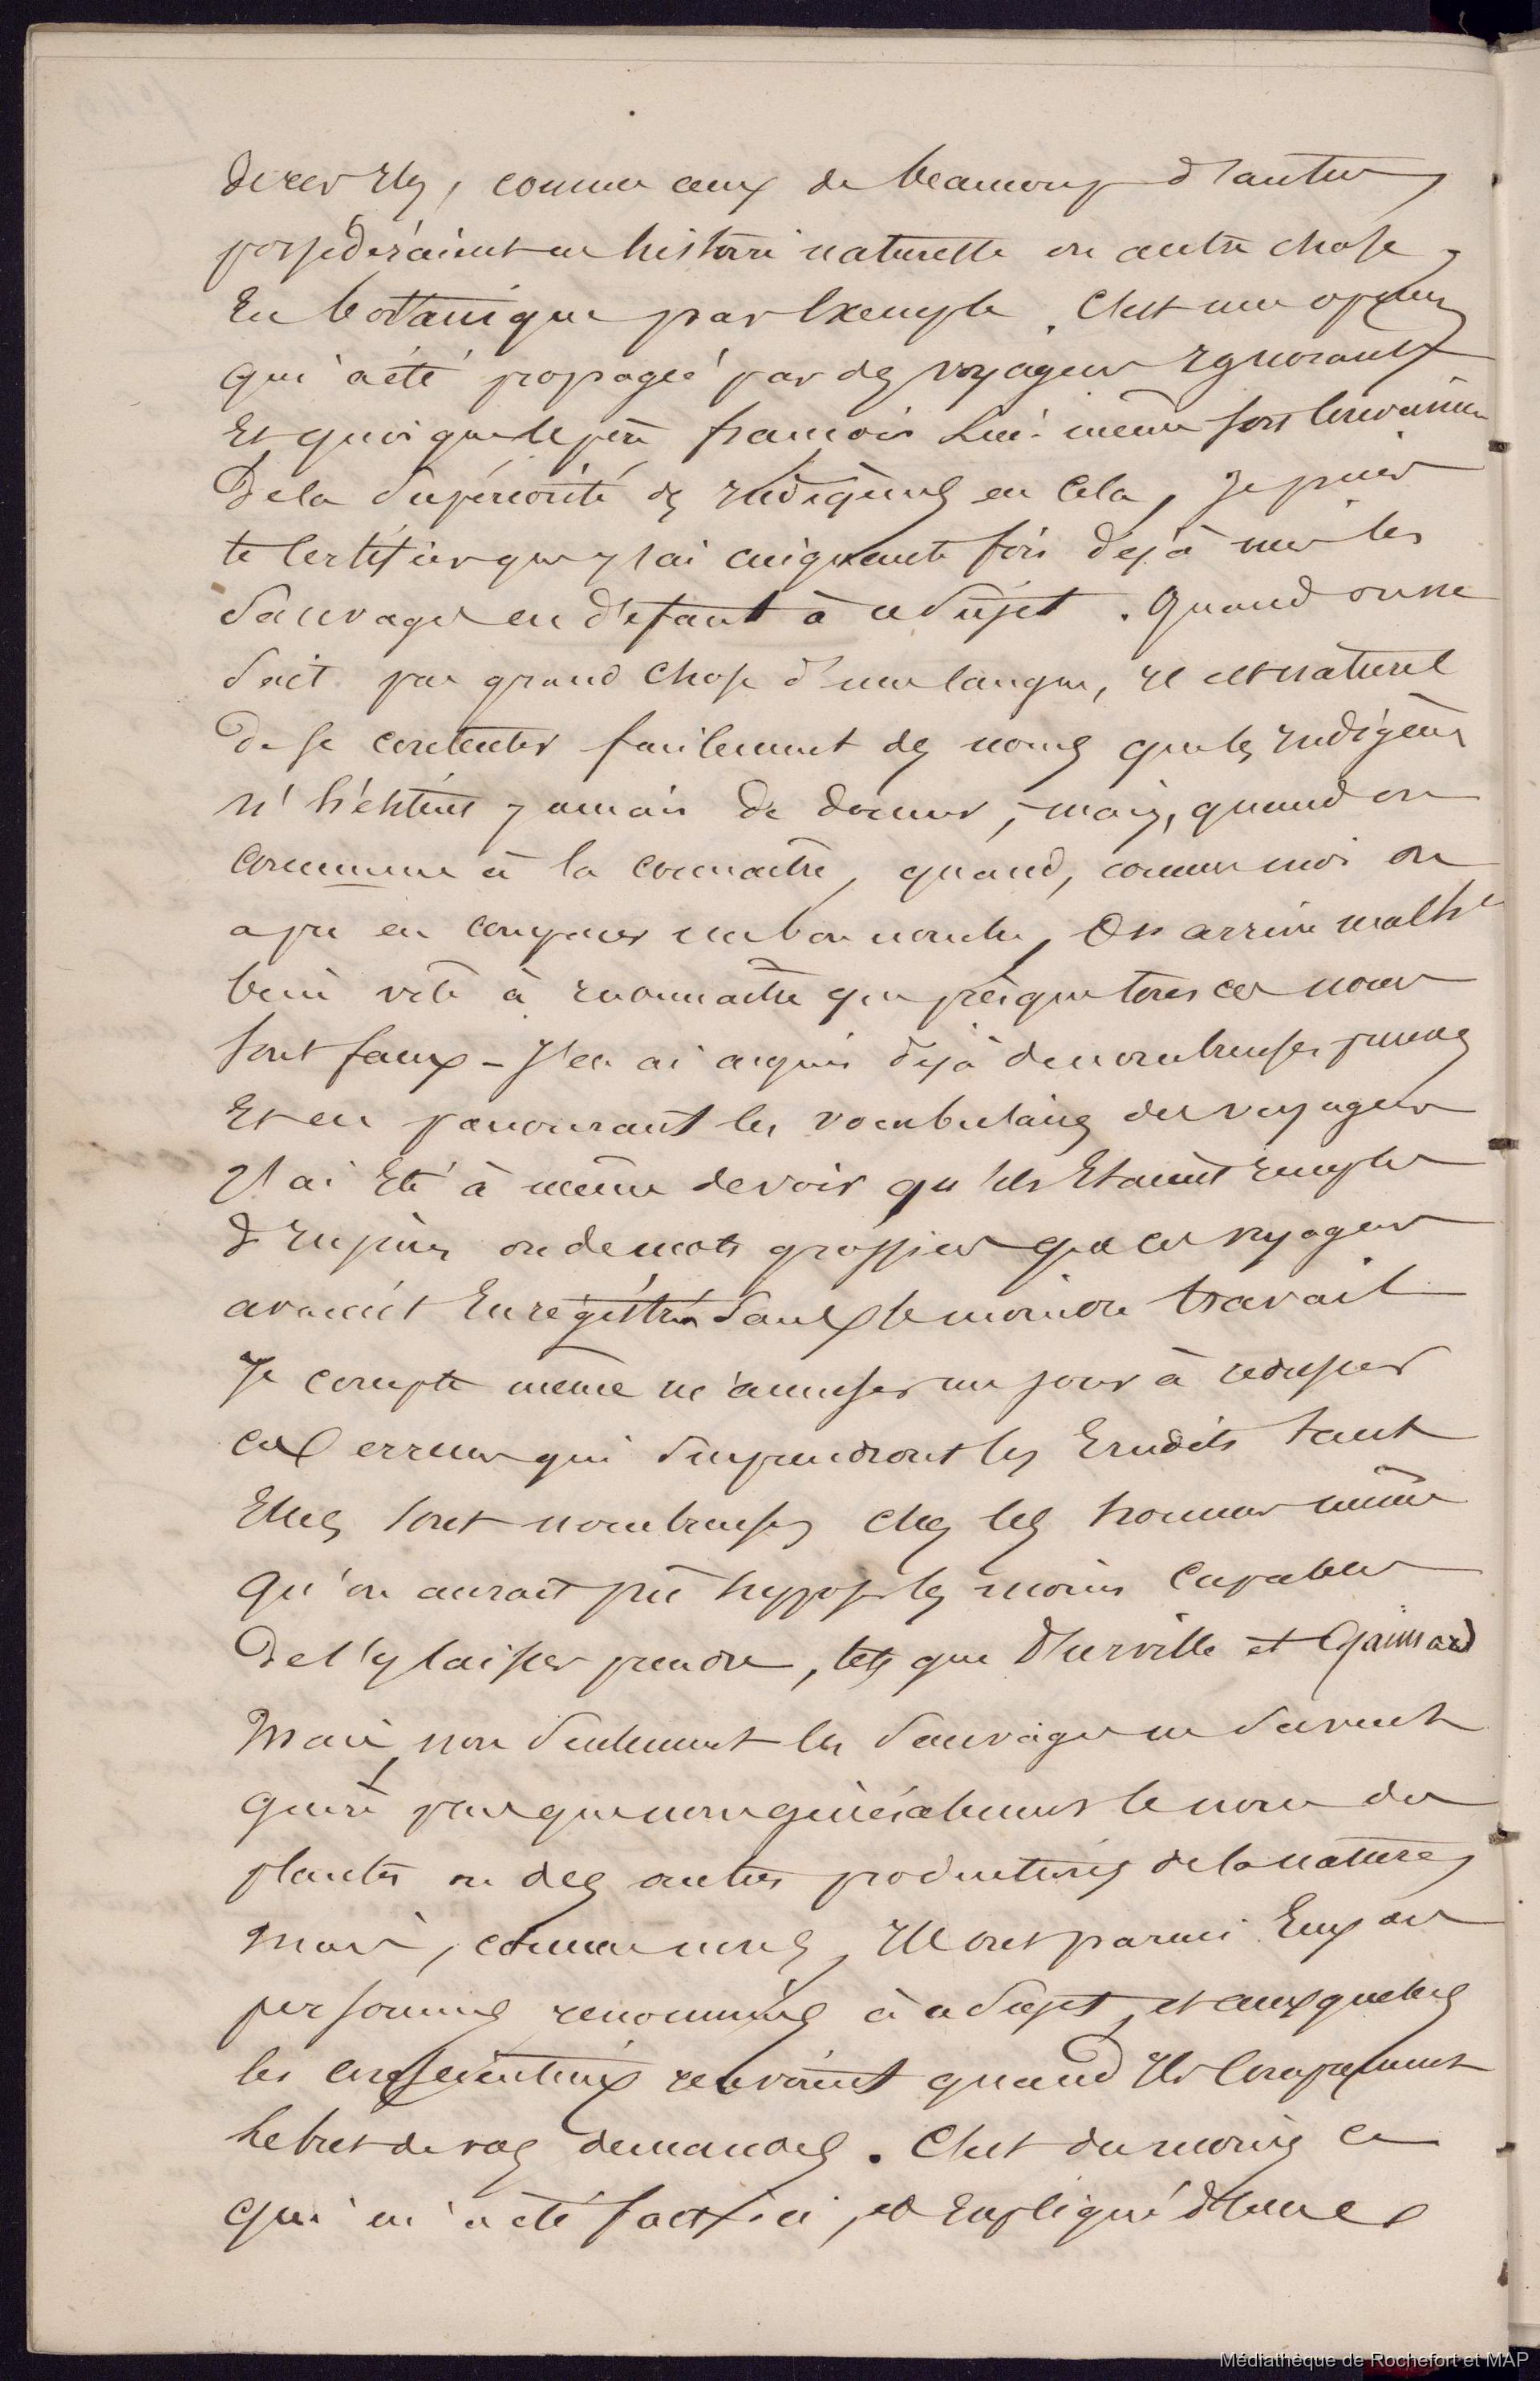 de ces Iles, comme ceux de beaucoup d'autres
possèderaient en histoire naturelle ou autre chose,
En bottanique par Exemple. C'est une opinion
qui a été propagée par des voyageurs Ignorants
Et quoique le père françois Lui-même soit convaincu
De la Supériorité des Indigènes en Cela, je puis
te Certifier que j'ai cinquante fois déjà mis les
Sauvages en défaut à ce Sujet. Quand on ne
Sait pas grand Chose d'une langue, Il est naturel
De se contenter facilement des noms que les Indigènes
n'hésitent jamais de donner, mais, quand on
commence à la connaitre, quand, comme moi on
a pu en comparer un bon nombre, On arrive malh.t
bien vite à reconnaitre que presque tous ces noms
sont faux - J'en ai acquis déjà de nombreuses preuves
Et en parcourant les vocabulaires des voyageurs
J'ai Eté à même de voir qu'Ils Etaient remplis
d'Injures ou de mots grossiers que ces voyageurs
avaient Enrégistrés Sans le moindre travail
Je compte même m'amuser un jour à redresser
ces erreurs qui Surprendront les Erudits tant
Elles sont nombreuses chez les hommes même
qu'on aurait pû supposer les moins Capables
De s'y laisser prendre, tels que D'urville et Gaimard
Mais, non Seulement les Sauvages ne Savent
guère plus que nous généralement le nom des
plantes ou des autres productions de la nature,
mais, comme nous, Ils ont parmi Eux des
personnes renommées à ce Sujet, et auxquelles
les consciencieux renvoient quand Ils Comprennent
le but de vos demandes. C'est du moins ce
qui m'a été fait ici, et Expliqué d'une